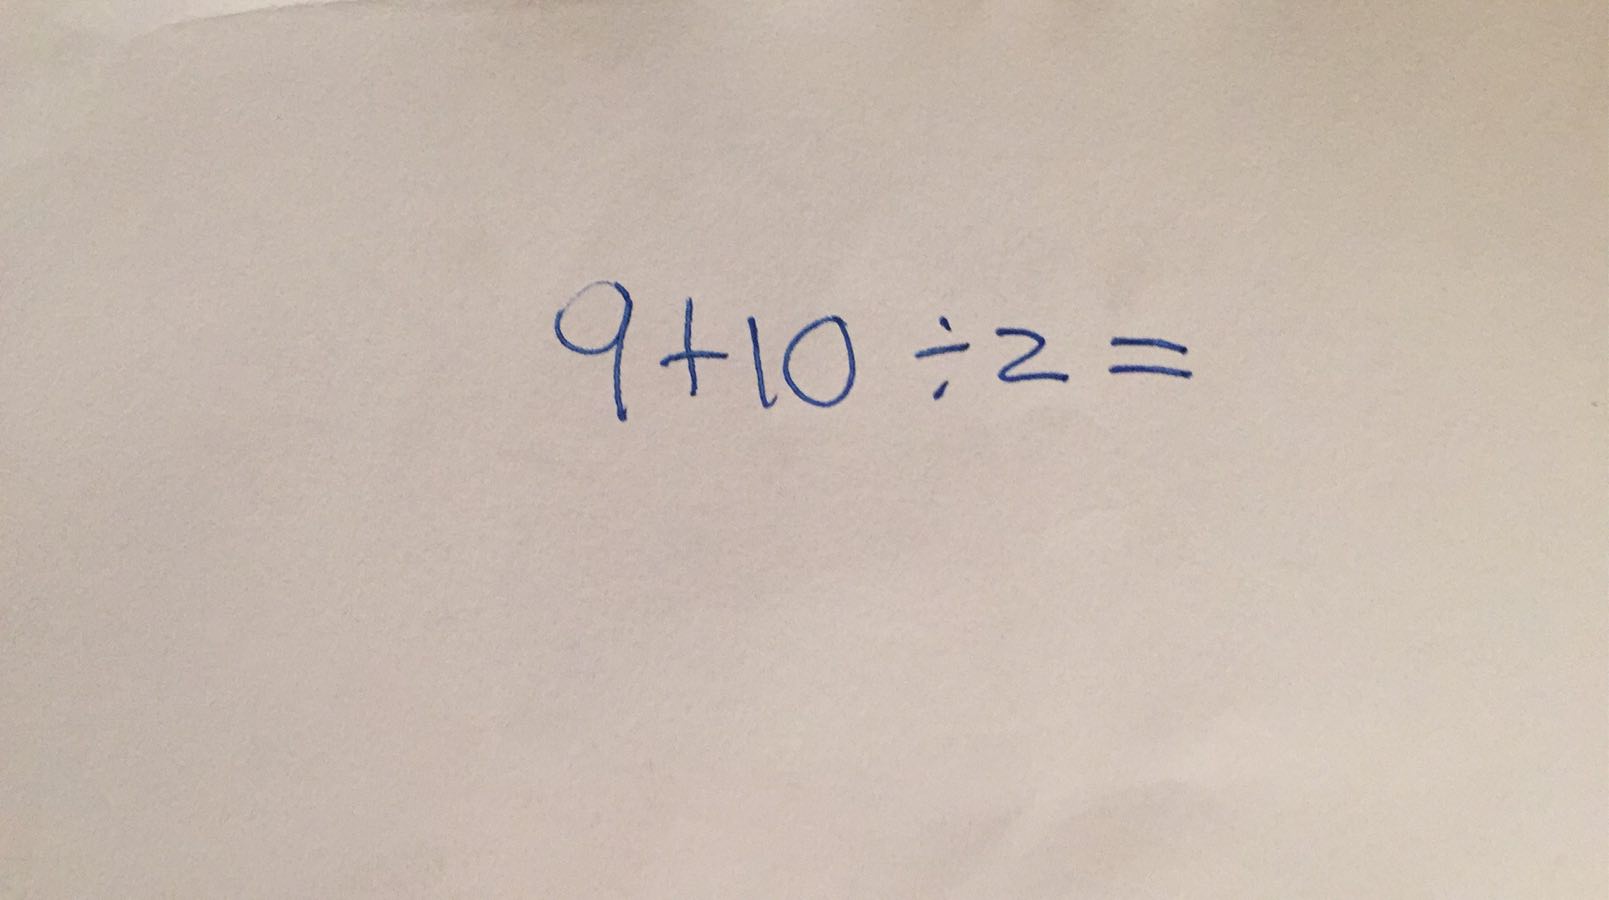 9+10 ÷ 2 =